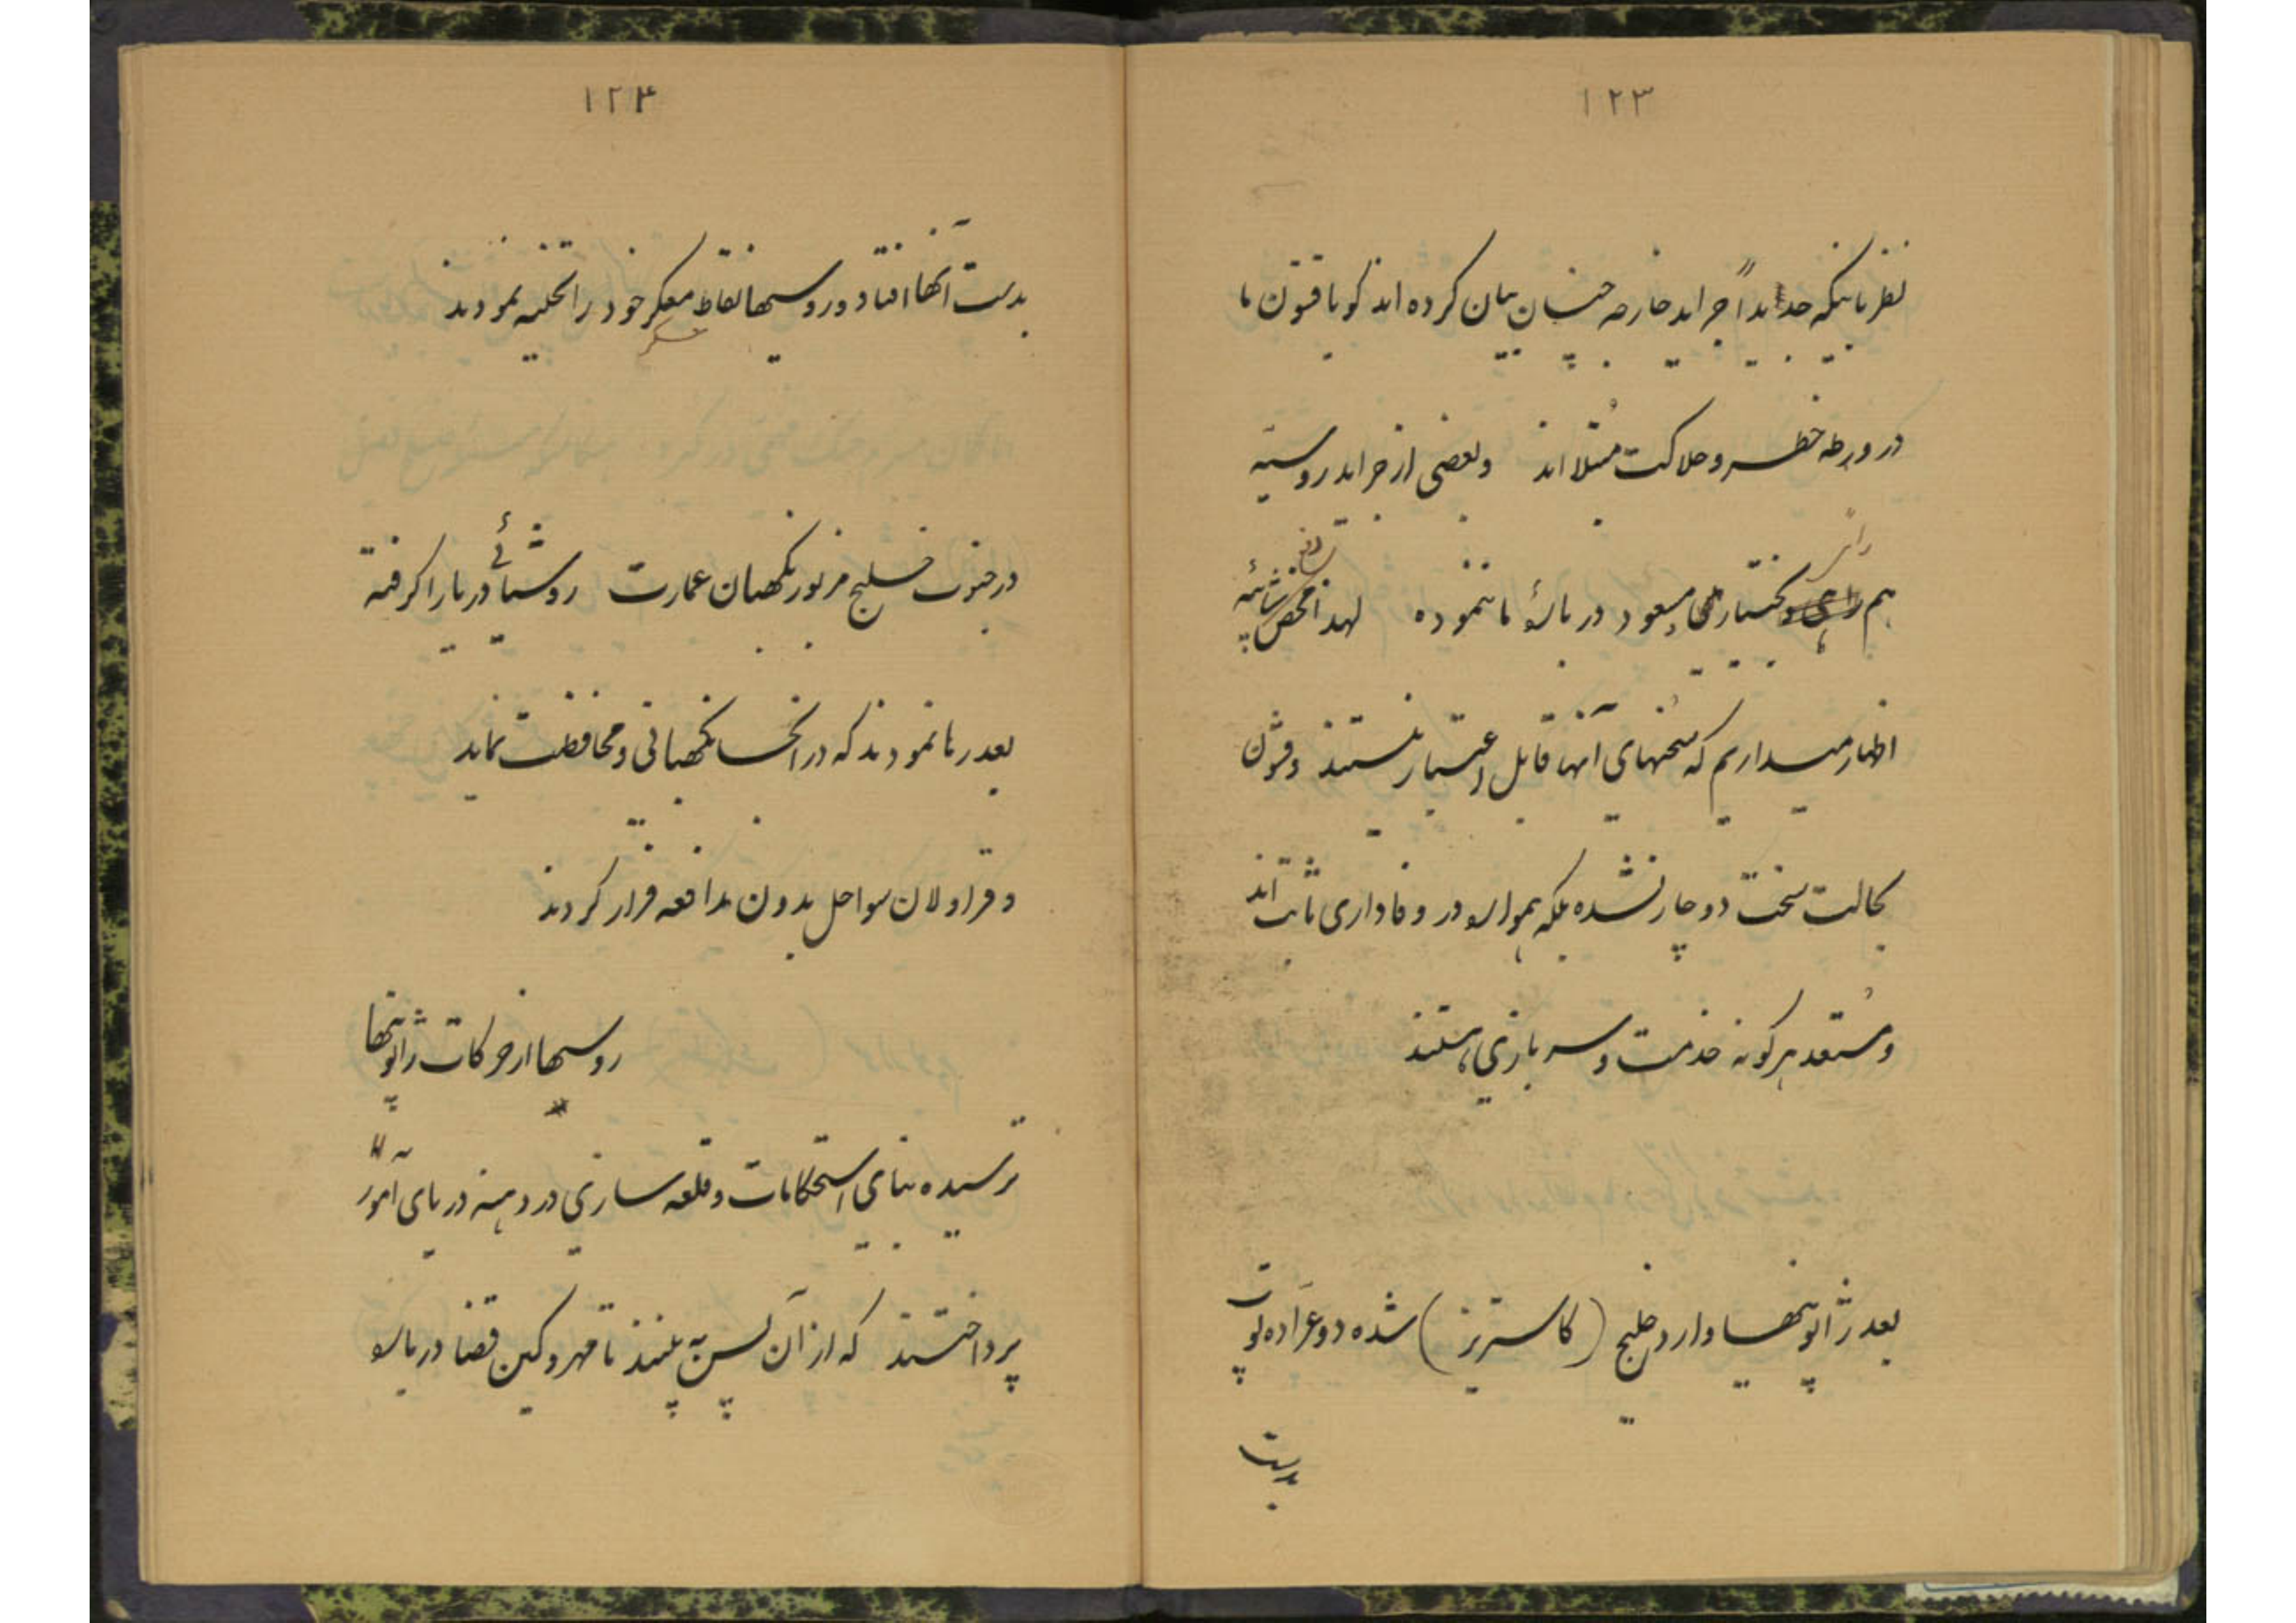 ۱۲۳
نظر باینکه جدیداً جراید خارجه چنان بیان کرده اند گویا قشون ما
در ورطه خطر و هلاکت مبتلا اند و بعضی از جراید روسیه
هم بختیار مسعود در باره ما ننموده لهذا محض
اظهار میداریم که سخنهای آنها قابل اعتبار نیستند و قشون
بحالت سخت دوچار نشده بلکه همواره در وفاداری ثابت اند
و مستعد هرگونه خدمت و سربازی هستند
بعد ژاپونیها وارد خلیج (کاستریز) شده دو عرّاده توپ
بدست
۱۲۴
بدست آنها افتاد و روسیها نقاط معسکر خود را تخلیه نمودند
عسکر
در جنوب خلیج مزبور نگهبان عمارت روشنائی دریا را گرفته
بعد رها نمودند که در آنجا نگهبانی و محافظت نماید
و قراولان سواحل بدون مدافعه فرار کردند
روسیها از حرکات ژاپونیها
ترسیده بنای استحکامات و قلعه سازی در دهنه دریای آمور
پرداختند که از آن پس به بینند تا مهر و کین قضا درباره